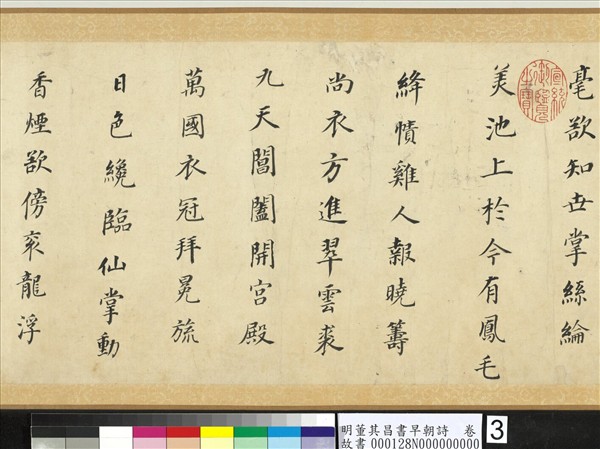 毫欲知世掌絲綸
美池上於今有鳳毛
絳幘雞人報曉籌
尚衣方進翠雲裘
九天閶闔開宮殿
萬國衣冠拜冕旒
日色纔臨仙掌動
香煙欲傍袞龍浮
宣統御覽之寶
明董其昌書早朝詩 卷
故書 000128N000000000
3